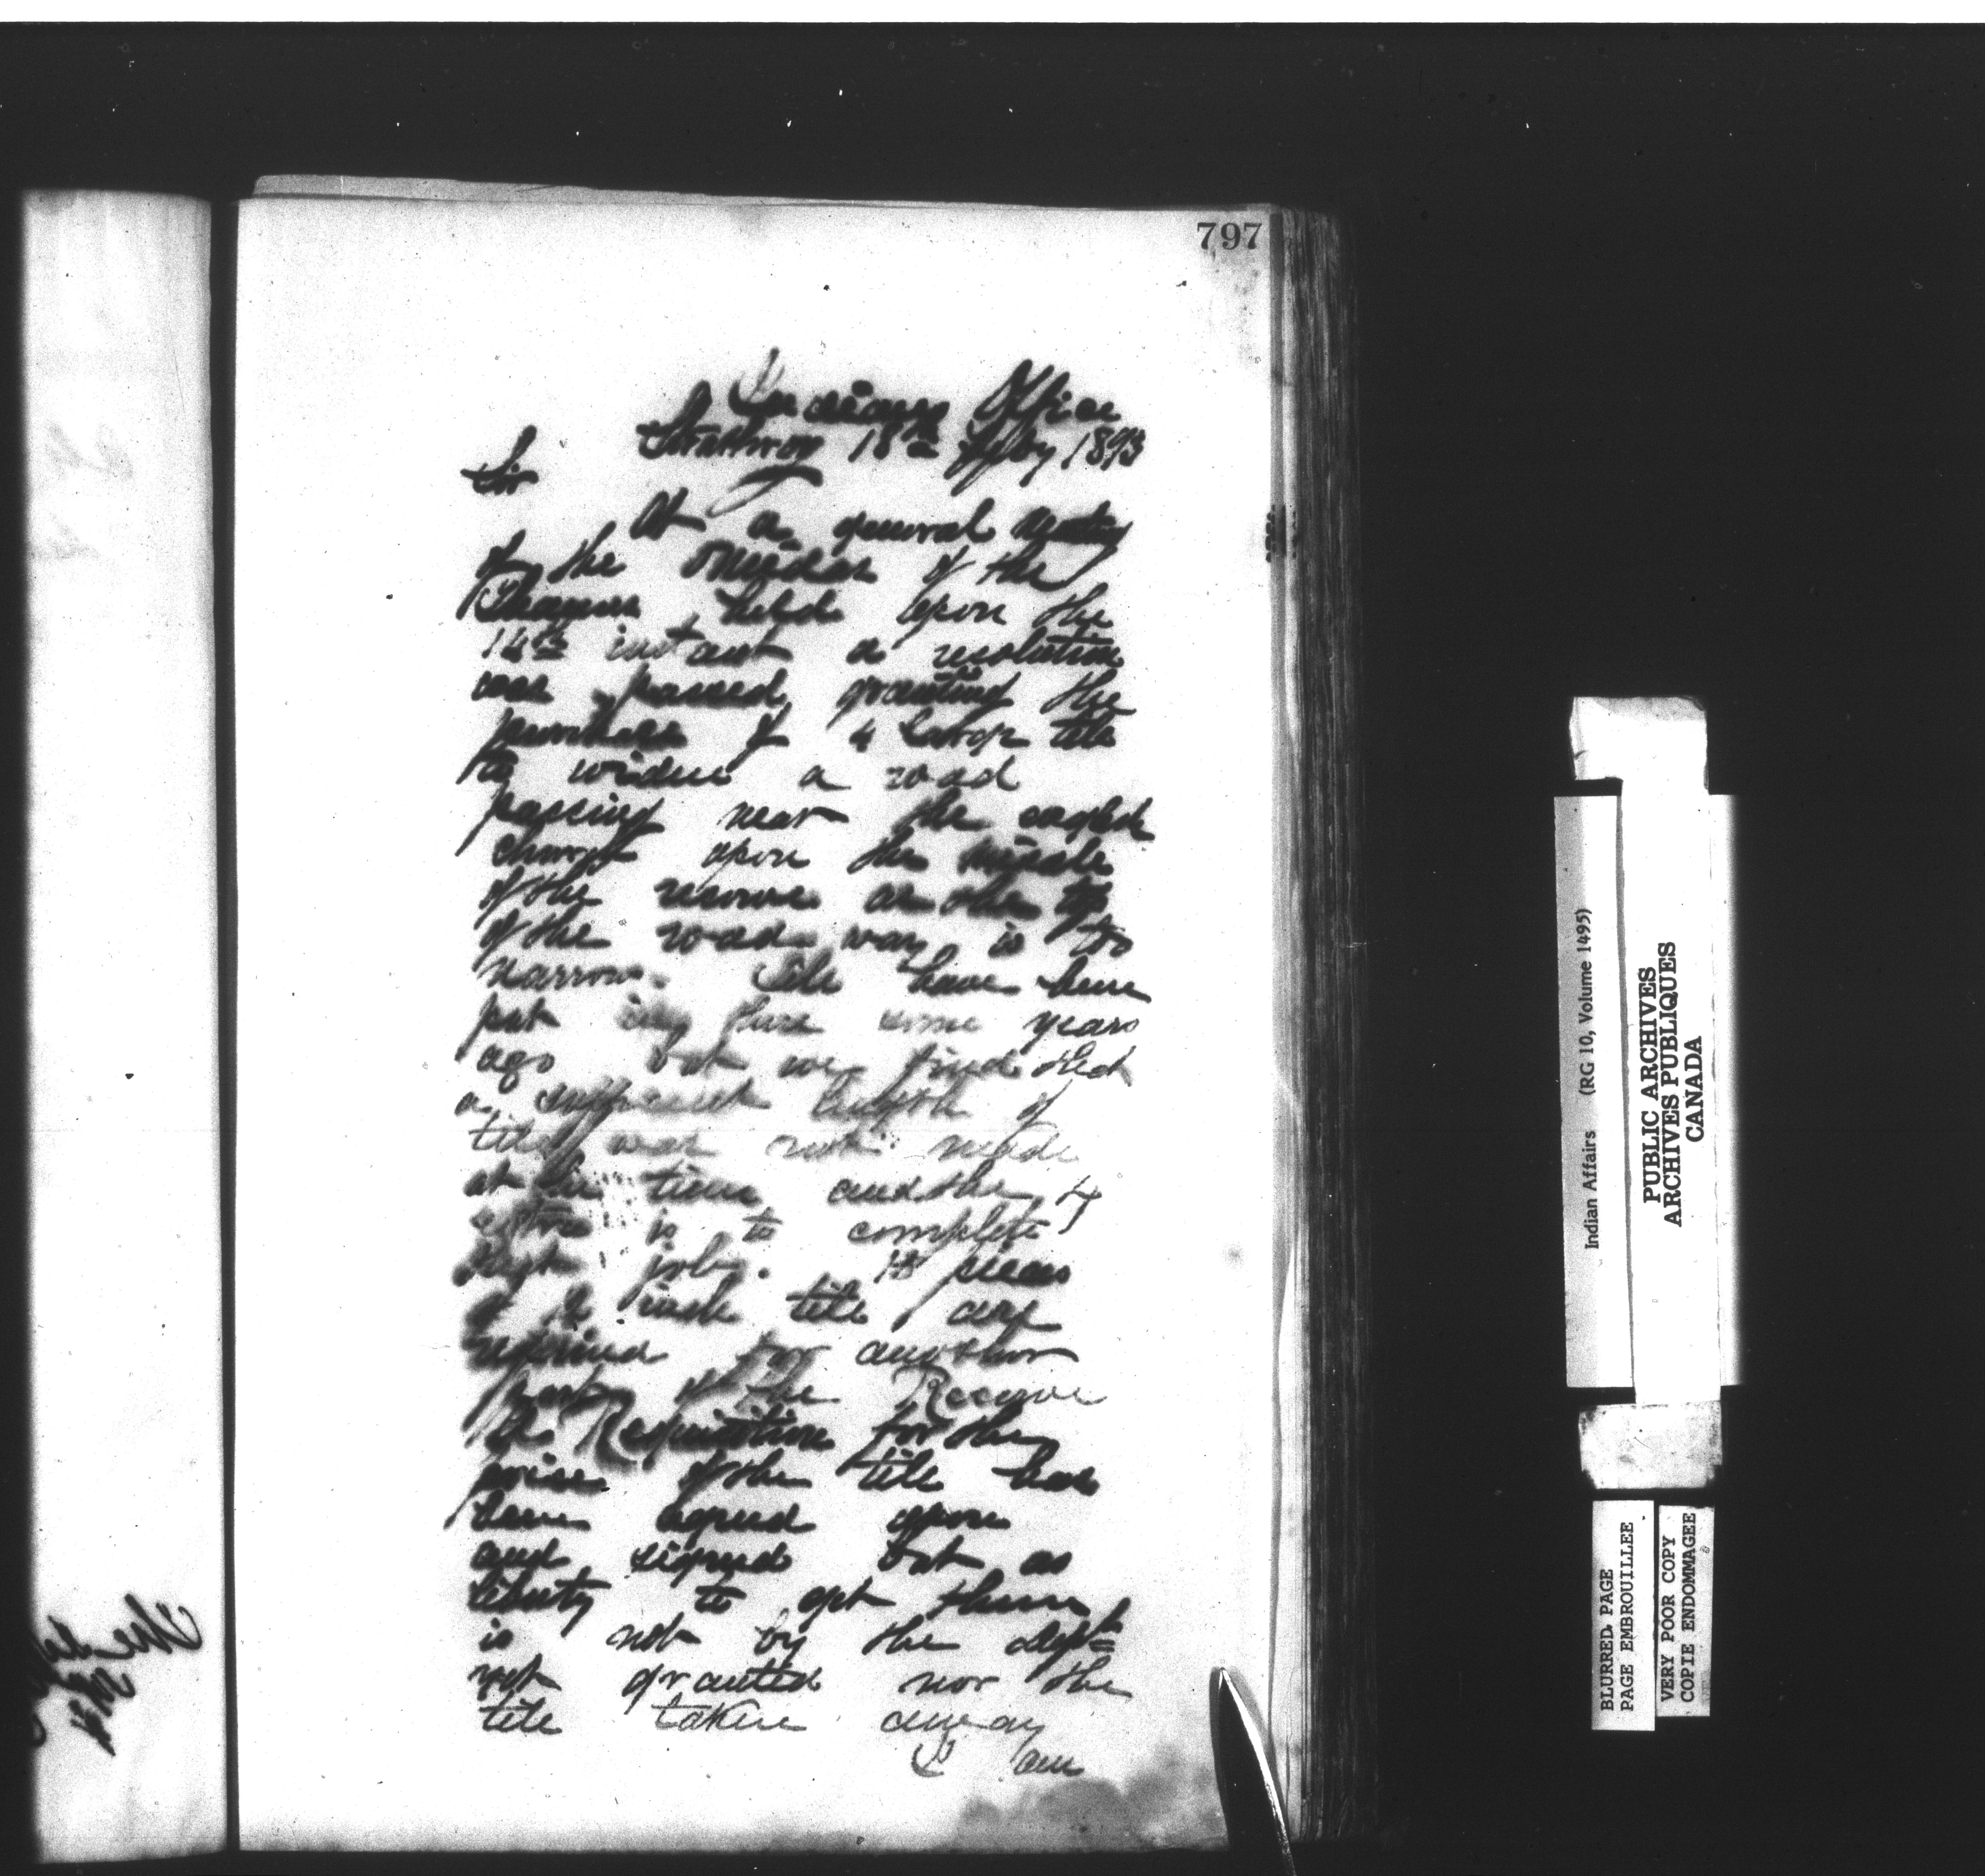 797
Indian Office
Strathroy 18th Feby 1893
Sir
At a general meeting
of the Oneidas of the
Thames held upon the
14th instant a resolution
was passed granting the
purchase of 4 large tile
to widen a road
passing near the English
Church upon the middle
of the reserve as the top
of the road way is too
narrow. Tile have been
put in there some years
ago but we find that
a sufficient length of
tile was not made
at the time and the 4
extra is to complete
job. 18 pieces
of inch tile are
required for another
part of the Reserve
the Requisition for the
price of the tile has
been agreed upon
and signed but as
liberty to get them
is not by the dept
yet granted nor the
tile taken away
am
Indian Affairs (RG 10, Volume 1495)
PUBLIC ARCHIVES
ARCHIVES PUBLIQUES
CANADA
BLURRED PAGE
PAGE EMBROUILLEE
VERY POOR COPY
COPIE ENDOMMAGEE